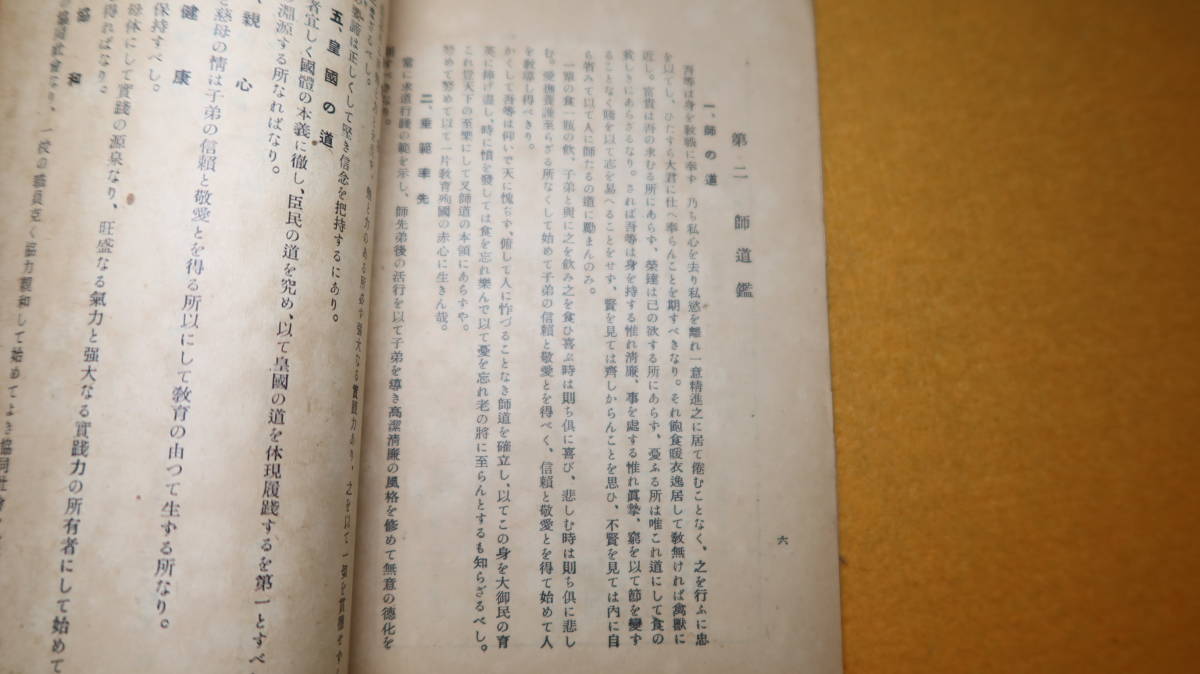 六
第二　師道鑑
一、師の道
吾等は身を敎職に奉ず　乃ち私心を去り私慾を離れ一意精進之に居て倦むことなく、之を行ふに忠
を以てし、ひたすら大君に仕へ奉らんことを期すべきなり。それ飽食暖衣逸居して敎無ければ禽獸に
近し。富貴は吾の求むる所にあらず、榮達は己の欲する所にあらず、憂ふる所は唯これ道にして食の
貧しきにあらざるなり。されば吾等は身を持する惟れ淸廉、事を處する惟れ眞摯、窮を以て節を變ず
ることなく賤を以て志を易へることをせず、賢を見ては齊しからんことを思ひ、不賢を見ては內に自
ら省みて以て人に師たるの道に勵まんのみ。
一簞の食一瓢の飮、子弟と與に之を飮み之を食ひ喜ぶ時は則ち俱に喜び、悲しむ時は則ち俱に悲し
む。愛撫養護至らざる所なくして始めて子弟の信賴と敬愛とを得べく、信賴と敬愛とを得て始めて人
を敎導し得べきなり。
かくして吾等は仰いで天に愧ぢず、俯して人に怍づることなき師道を確立し、以てこの身を大御民の育
英に捧げ盡し、時に憤を發しては食を忘れ樂んで以て憂を忘れ老の將に至らんとするも知らざるべし。
これ豈天下の至樂にして又師道の本領にあらずや。
努めて努めて以て一片敎育殉國の赤心に生きん哉。
二、垂範率先
常に求道行踐の範を示し、師先弟後の活行を以て子弟を導き高潔淸廉の風格を修めて無意の德化を
べきなり。
は正しくして堅き信念を把持するにあり。
五、皇國の道
者宜しく國體の本義に徹し、臣民の道を究め、以て皇國の道を体現履踐するを第一とすべ
淵源する所なればなり。
親心
慈母の情は子弟の信賴と敬愛とを得る所以にして敎育の由つて生ずる所なり。
健康
保持すべし。
母体にして實踐の源泉なり、旺盛なる氣力と强大なる實踐力の所有者にして始めて
得ればなり。
協和
一校の職員克く協力親和して始めてよき協同社會